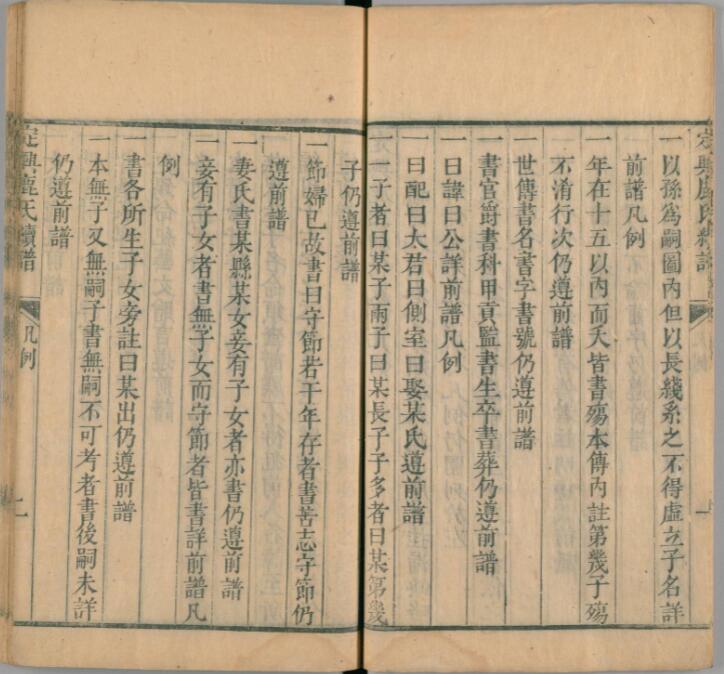 一以孫爲嗣圖内但以長綫系之不得虛立子名詳
前譜凡例
一年在十五以内而夭皆書殤本傳内註第幾子殤
不淆行次仍遵前譜
一世傳書名書字書號仍遵前譜
一書官爵書科甲貢監書生卒書葬仍遵前譜
一曰諱曰公詳前譜凡例
一曰配曰太君曰側室曰娶某氏遵前譜
一一子者曰某子兩子曰某長子子多者曰某第幾
子仍遵前譜
一節婦已故書曰守節若干年存者書苦志守節仍
遵前譜
一妻氏書某縣某女妾有子女者亦書仍遵前譜
一妾有子女者書無子女而守節者皆書詳前譜凡
例
一書各所生子女旁註曰某出仍遵前譜
一本無子又無嗣子書無嗣不可考者書後嗣未詳
仍遵前譜
定興鹿氏續譜
凡例
二